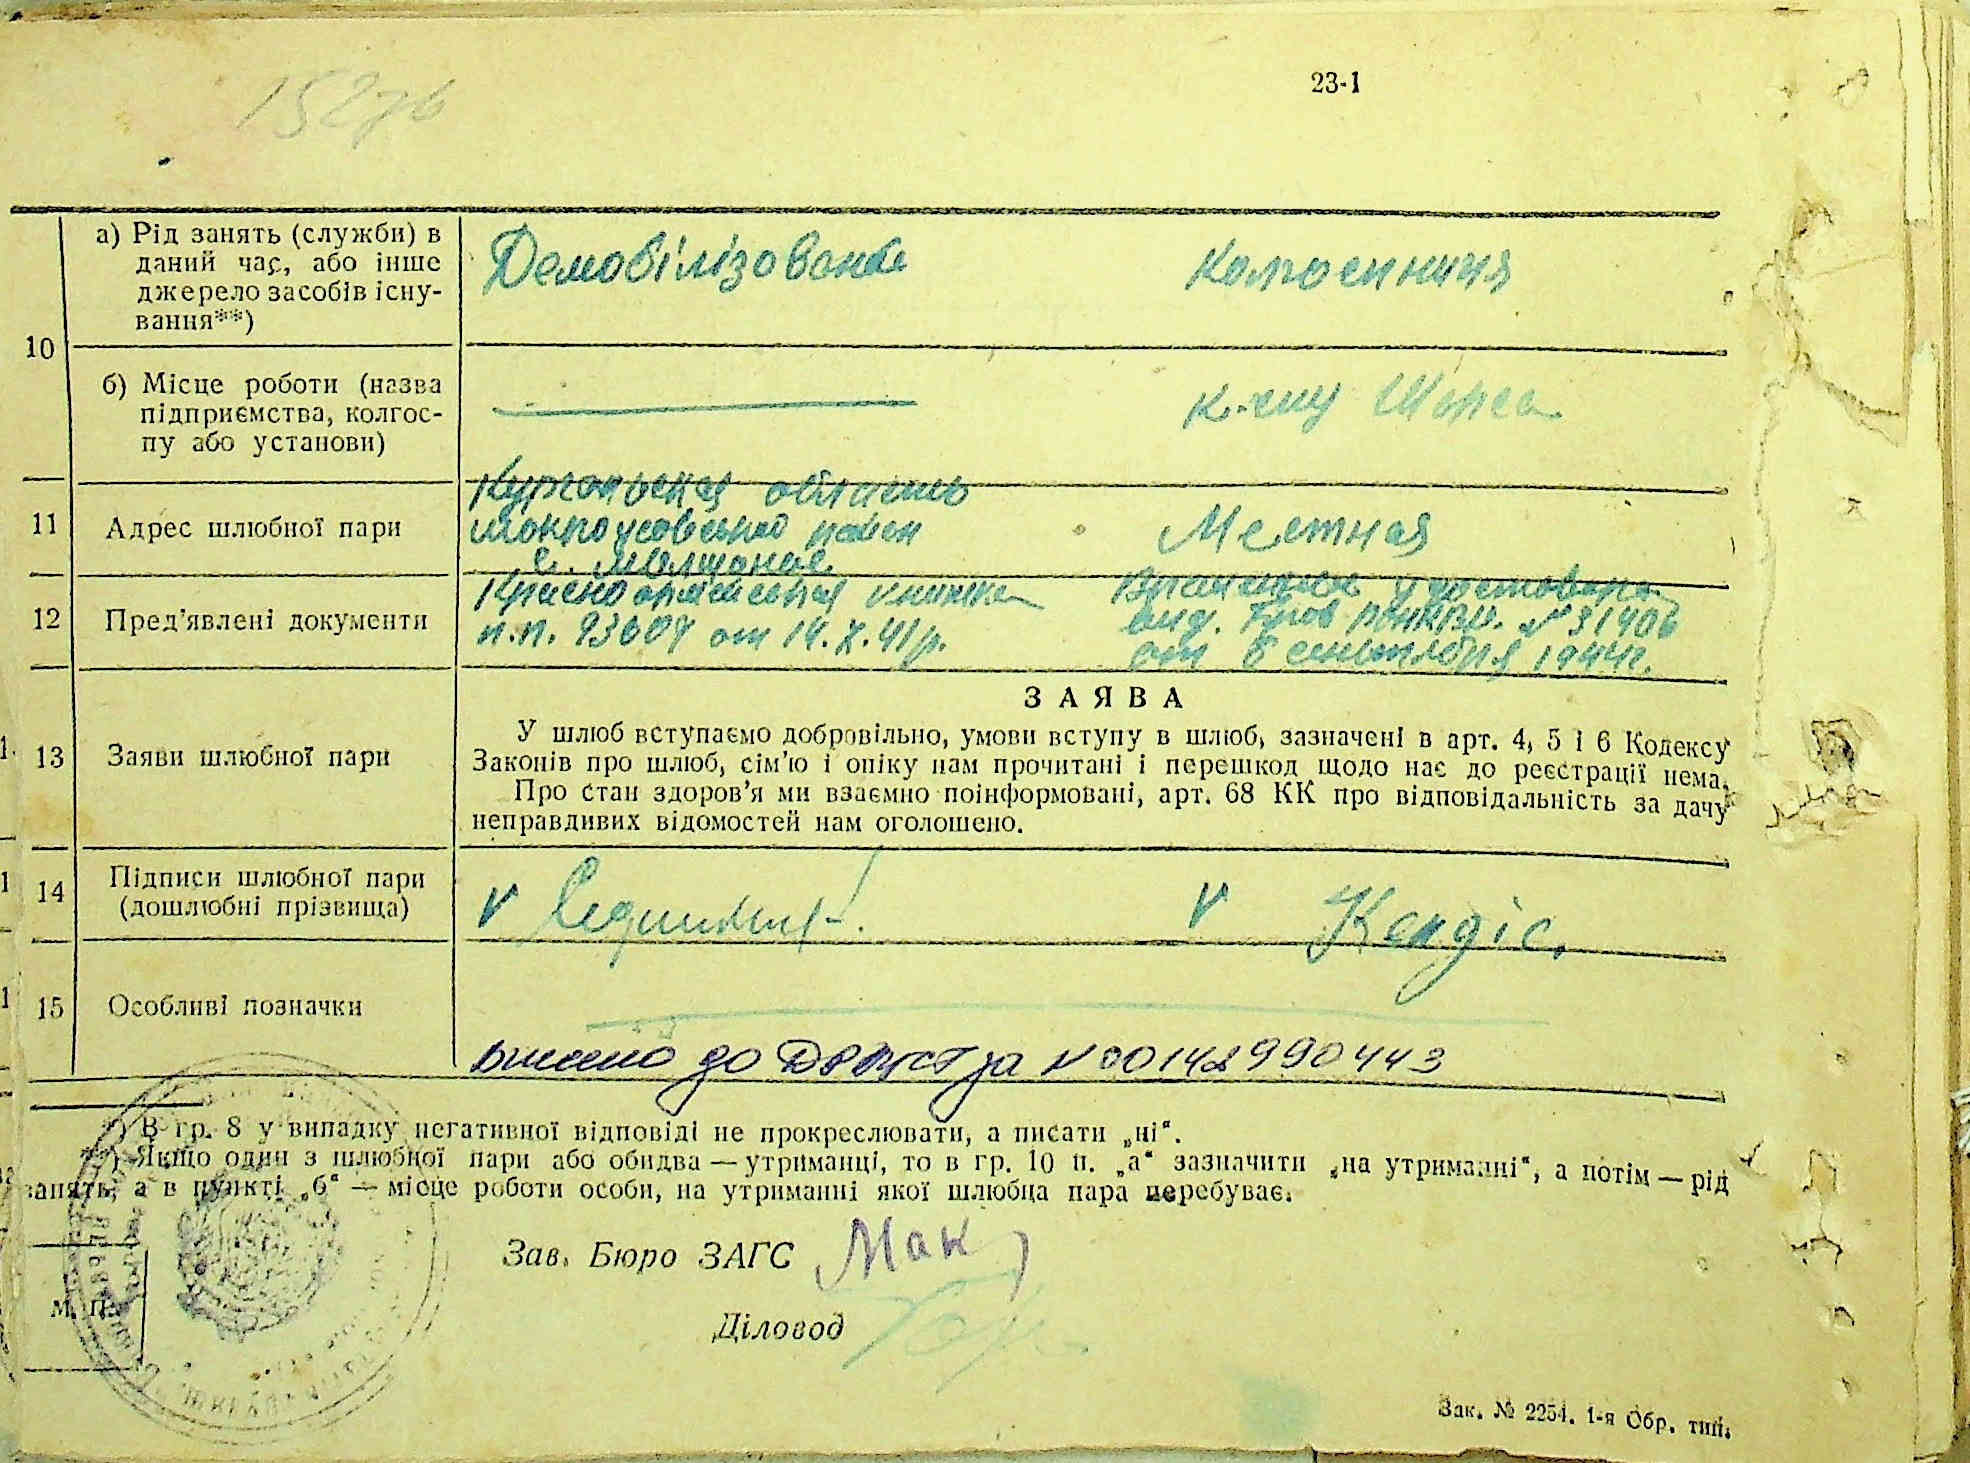 23-1
10
а) Рід занять (служби) в
даний час, або інше
джерело засобів існу-
вання**)
Демобілізован
Колгоспниця
б) Місце роботи (назва
підприємства, колгос-
пу або установи)
Щорса
11
Адрес шлюбної пари
Курганьская область
Мокроусовский район
с.
Местная
12
Пред’явлені документи
Красноармейская книжка
п.п. 93607 от 14.X.41р.
Временное удостовере
вид. № 31406
от 8 сентября 1944г.
13
Заяви шлюбної пари
ЗАЯВА
У шлюб вступаємо добровільно, умови вступу в шлюб, зазначені в арт. 4, 5 і 6 Кодексу
Законів про шлюб, сім’ю і опіку нам прочитані і перешкод щодо нас до реєстрації нема.
Про стан здоров’я ми взаємно поінформовані, арт. 68 КК про відповідальність за дачу
неправдивих відомостей нам оголошено.
14
Підписи шлюбної пари
(дошлюбні прізвища)
V
V
15
Особливі позначки
внесено до ДРАЦСГ за № 00142990443
*) В гр. 8 у випадку негативної відповіді не прокреслювати, а писати „ні“.
**) Якщо один з шлюбної пари або обидва — утриманці, то в гр. 10 п. „а“ зазначити „на утриманні“, а потім — рід
занять, а в пункті „б“ — місце роботи особи, на утриманні якої шлюбна пара перебуває.
Зав. Бюро ЗАГС Мак
М. П.
Діловод
Зак. № 2254. 1-я Обр. тип.